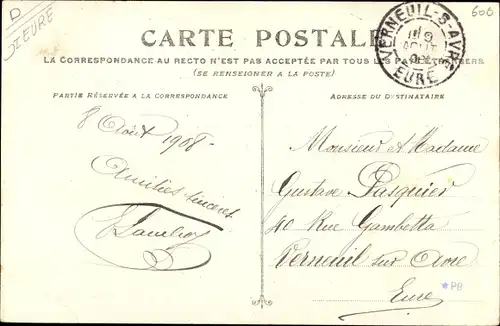 D
St EURE
606
VERNEUIL-S-AVRE
AOUT
EURE
CARTE POSTALE
LA CORRESPONDANCE AU RECTO N'EST PAS ACCEPTÉE PAR TOUS LES PAYS ÉTRANGERS
(SE RENSEIGNER A LA POSTE)
PARTIE RÉSERVÉE A LA CORRESPONDANCE
ADRESSE DU DESTINATAIRE
8 Août 1908
Amitiés sincères
Monsieur et Madame
Gustave Pasquier
40 Rue Gambetta
Verneuil sur Avre
Eure
*PB